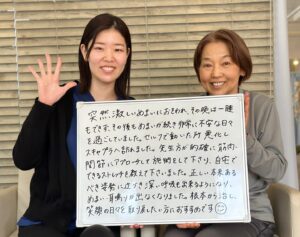 突然激しいめまいにおそわれ、その晩は一睡
もできず、その後もめまいが続き非常に不安な日々
を過ごしていました。セルフで動いた所悪化し
スキャプラへ訪れました。先生方が的確に筋肉・
関節にアプローチして施術をして下さり、自宅で
できるストレッチを教えて下さいました。正しい本来ある
べき姿勢に近づき深い呼吸も出来るようになり、
めまい・耳鳴りが出なくなりました。根本から治し、
笑顔の日々を取り戻したい方におすすめです